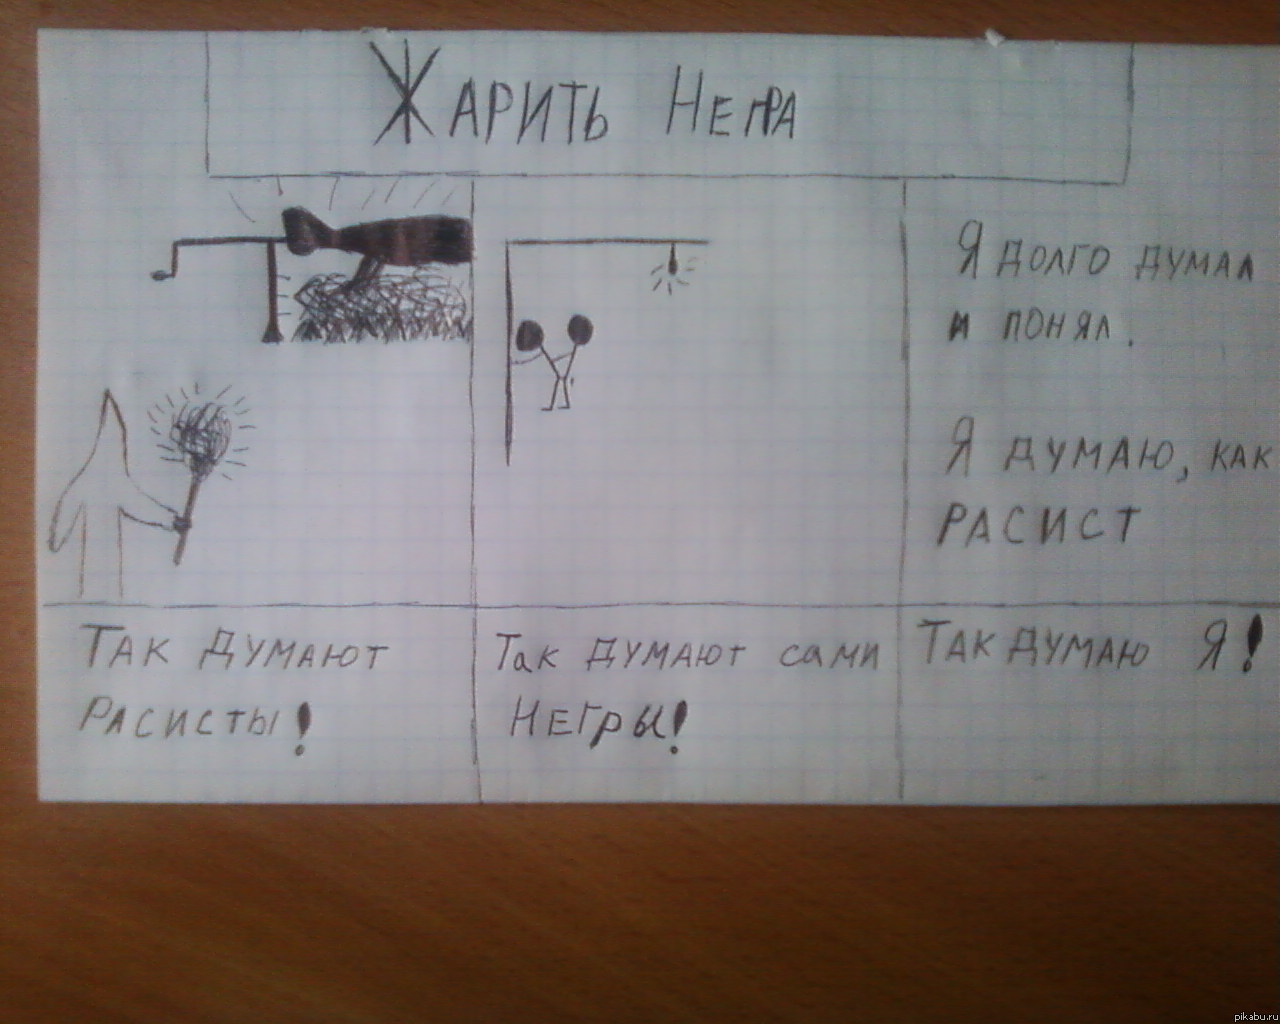 Жарить Негра
Я долго думал
и понял.
Я думаю, как
расист
Так думают
расисты!
Так думают сами
негры!
Так думаю Я!
pikabu.ru